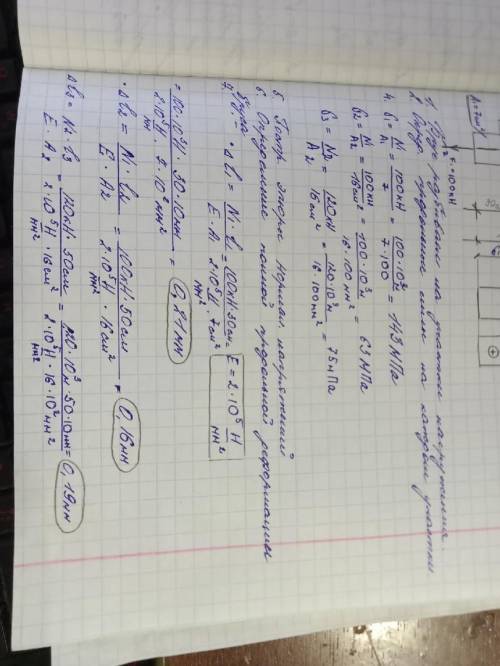 F=100кН
1. Брус разбиваем на участки нагружения.
2. Опред. продольные силы на каждом участке
4. б₁ = N₁/A₁ = 100кН/7 = 100·10³Н/7·100 = 143 МПа
б₂ = N₁/A₂ = 100кН/16см² = 100·10³Н/16·100мм² = 63 МПа
б₃ = N₂/A₂ = 120кН/16см² = 120·10³Н/16·100мм² = 75 МПа
5. Постр. эпюры нормал. напряжений
6. Определение полной продольной деформации
бруса. E = 2·10⁵ Н/мм²
Δl₁ = N₁·l₁/E·A₁ = 100кН·30см/2·10⁵ Н/мм²·7см² =
= 100·10³Н·30·10мм/2·10⁵ Н/мм²·7·10² мм² = 0,21мм
Δl₂ = N₁·l₂/E·A₂ = 100кН·50см/2·10⁵ Н/мм²·16см² = 0,16мм
Δl₃ = N₂·l₃/E·A₂ = 120кН·50см/2·10⁵ Н/мм²·16см² = 120·10³Н·50·10мм/2·10⁵ Н/мм²·16·10² мм² = 0,19мм